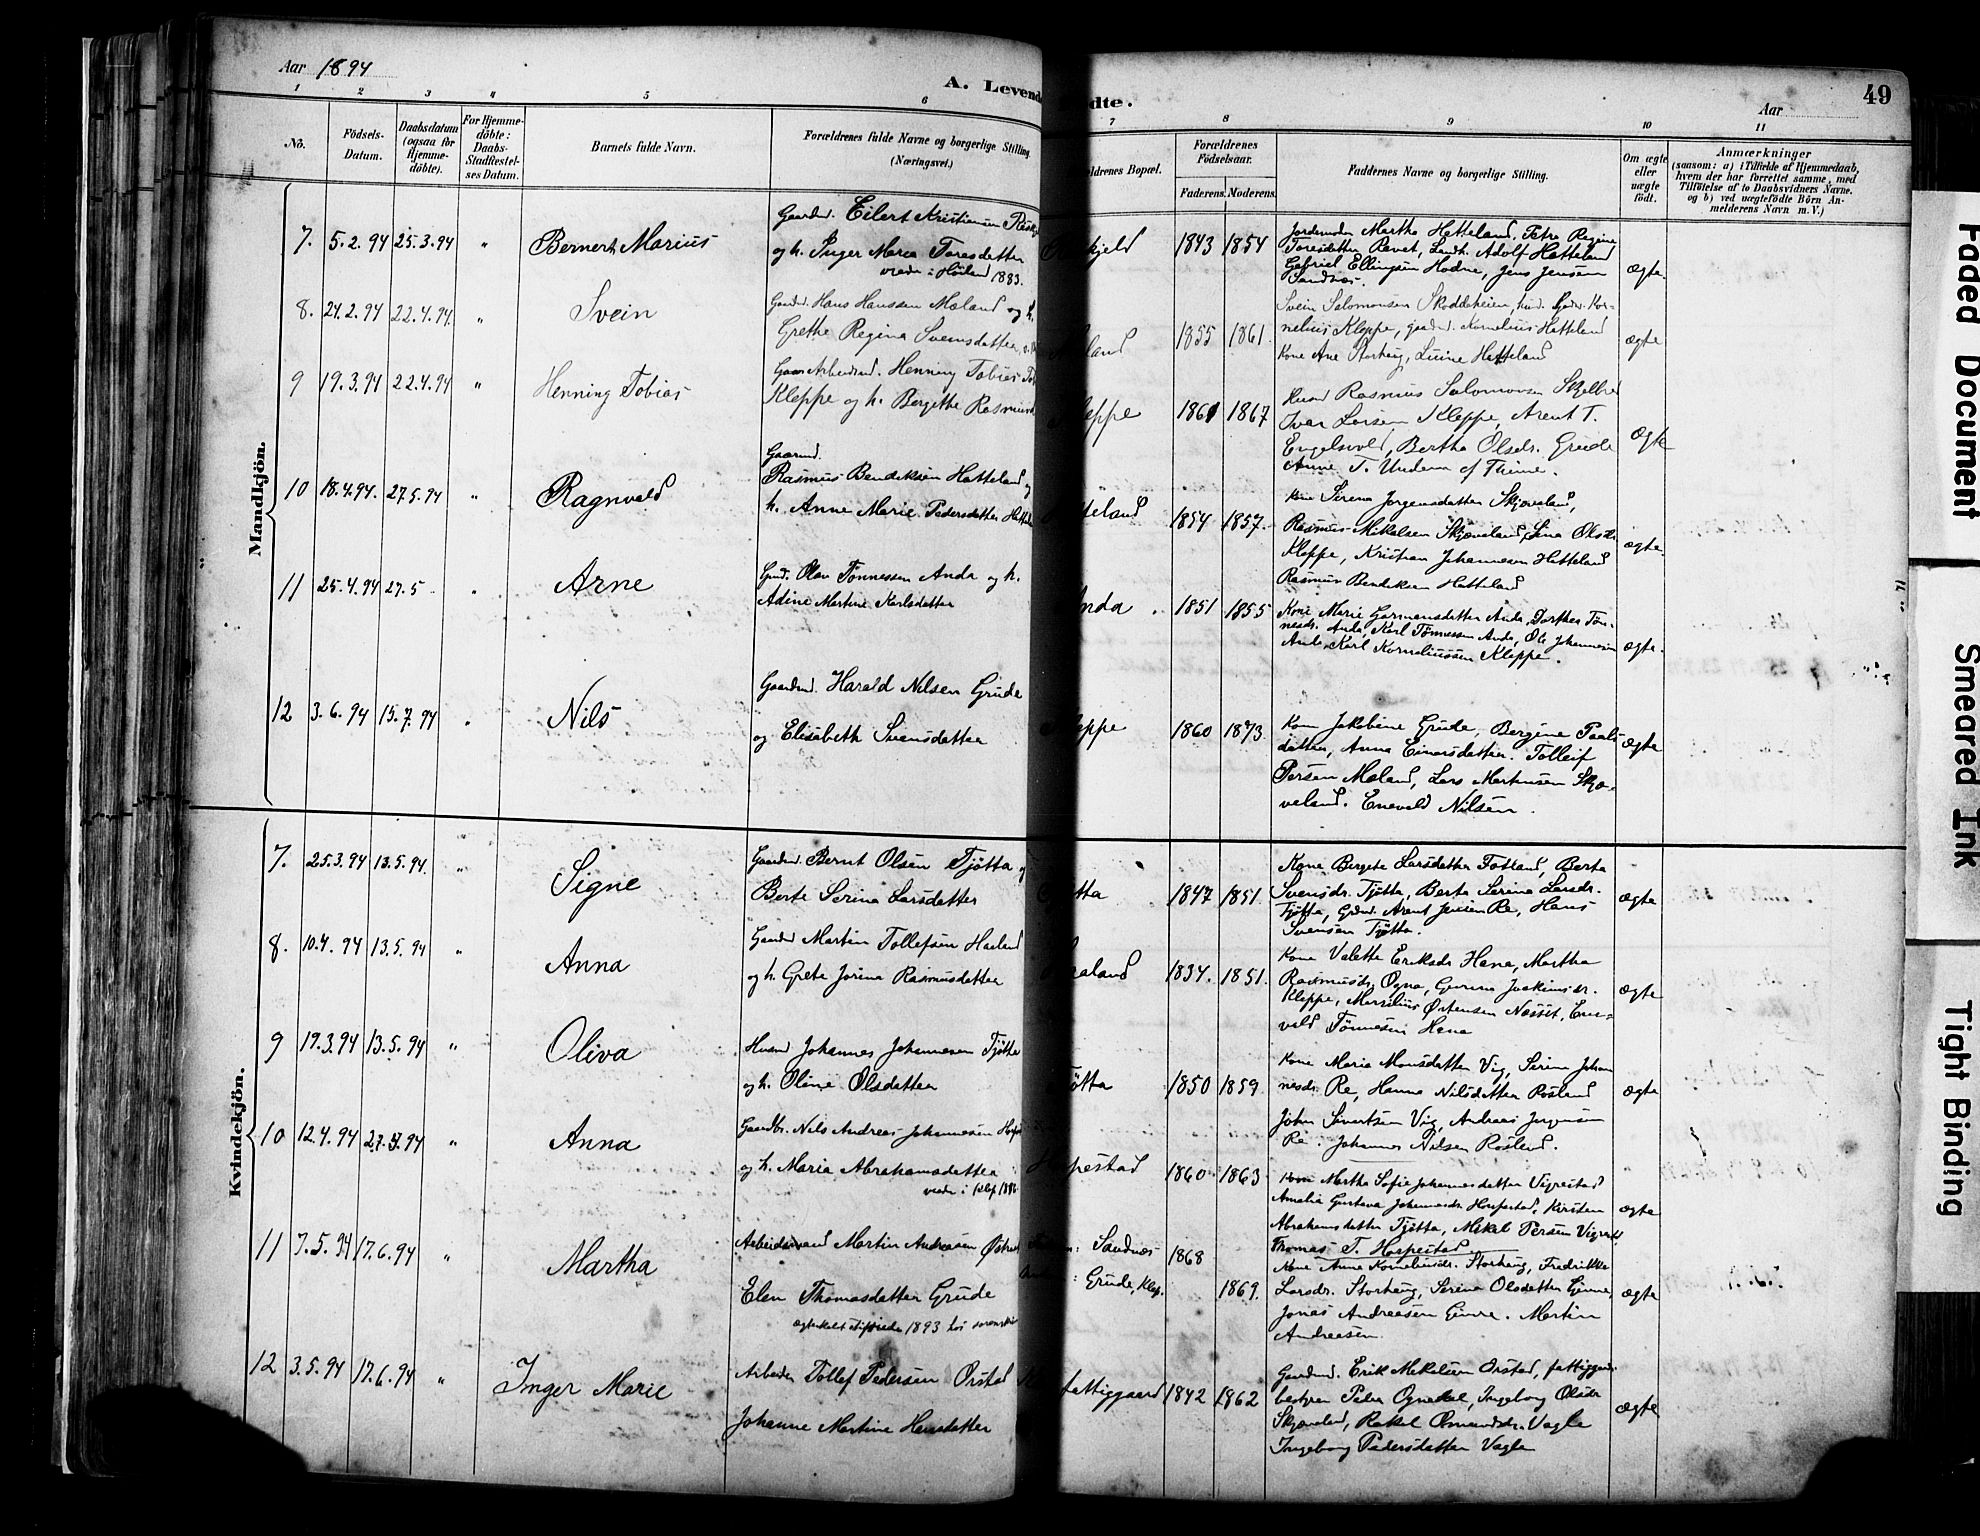 Aar 1894
A. Levende
dte.
Aar
49
1 2 3 4 5 6 7 8 9 10 11
No.
Födsels-
Datum.
Daabsdatum
(ogsaa for
Hjemme-
döbte).
For Hjemme-
döbte:
Daabs-
Stadfæstel-
ses Datum.
Barnets fulde Navn.
Forældrenes fulde Navne og borgerlige Stilling
(Næringsvei.)
ldrenes Bopæl.
Forældrenes
Födselsaar.
Faderens. Moderens.
Faddernes Navne og borgerlige Stilling.
Om ægte
eller
uægte
födt.
Anmærkninger
(saasom: a) i Tilfælde af Hjemmedaab,
hvem der har forrettet samme, med
Tilföielse af to Daabsvidners Navne.
og b) ved uægtefödte Börn An-
melderens Navn m.V.)
Mandkjön.
7. 5.2.94 25.3.94 " Bernert Marius
Gaardmd. Eilert Kristiansen
og h. Inger Marie Toresdatter
viede i Høiland 1883.
kjeld 1843 1854
Jordemoder Martha Hatteland, Petra Regine
Toresdatter, Adolf Hatteland
Gabriel Ellingsen Hodne, Jens Jensen
Sandnæs.
ægte
8. 24.2.94 22.4.94. " Svein
Gaardmd. Hans Hanssen Mæland og h.
Grethe Regina Svensdatter
land 1855 1861
Svein Salomonsen
nelius Kleppe, gaardmd. Kornelius Hatteland
Kone Ane Storhaug, Hatteland
ægte
9 19.3.94 22.4.94 " Henning Tobias
Arbeidsmd. Henning Tobias
Kleppe og h. Bergithe
eppe 1861 1867
Rasmus Salomonsen
Ivar Larsen Kleppe, Arent T.
Engelsvold, Bertha Olsdr. Grude
Anne T. Undem af Thime.
ægte
10 18.4.94. 27.5.94 " Ragnvald
Gaardmd.
Rasmus Bendiksen Hatteland
h. Anne Marie Pedersdatter
teland 1854 1857.
Kone Serena Jørgensdatter Skjæveland,
Rasmus Mikalsen Skjæveland, Sina Olsdr
Kleppe, Kristian Johannesen Hatteland
Rasmus Bendiksen Hatteland
ægte
11 25.4.94 27.5 " Arne
Gmd. Olav Tønnessen Anda og h.
Adine Martine Karlsdatter
nda 1851 1855
Kone Marie Garmansdatter Anda, Dorthea Tøn-
nesdr. Anda, Karl Tønnessen Anda, Ole Johannesen
Anda, Karl Korneliussen Kleppe.
ægte.
12 3.6.94 15.7.94 " Nils
Gaardmd. Harald Nilsen Grude
og Elisabeth Svensdatter
ppe 1860 1873.
Kone Jakobine Grude, Bergine Paals
datter, Anna Einarsdatter. Tolleif
Persen Mæland, Lars Martinsen Skjæ-
veland. Enevald Nilsen.
ægte
Kvindekjön.
7. 25.3.94 13.5.94. " Signe
Gaardmd. Bernt Olsen Tjøtta
Berte Serina Larsdatter
tta 1847 1851.
Kone Bergete Larsdatter Fotland, Berte
Svensdr. Tjøtta, Berte Serina Larsdr.
Tjøtta, Arent Jensen Re, Hans
Svensen Tjøtta.
ægte
8. 10.4.94 13.5.94 " Anna
Gaardmd Martin Tollefsen Haaland
og h. Grete Jorina Rasmusdatter
aaland 1834. 1851.
Kone Valette Eriksdr. Hana, Martha
Rasmusdr. Ogna, Gurine Joakimsdr.
Kleppe, Østensen Næsset, Ene-
vald Tønnesen Hana
ægte
9 19.3.94 13.5.94 " Oliva
Johannes Johannesen Tjøtta
og h. Oline Olsdatter
øtta 1850 1859.
Kone Maria Monsdatter Vig, Serine Johan
nesdr. Re, Hanna Nilsdatter Rosland
John Sivertsen Vig, Andreas Jørgensen
Re. Johannes Nilsen Rosland.
ægte
10 12.4.94 27.5.94 " Anna
Gaardbr. Nils Andreas Johannesen
og h. Maria Abrahamsdatter
viede i Klep
pestad 1860 1863
Kone Martha Sofie Johannesdatter Vigrestad
Amalia Gustava Johannesdr. Horpestad, Kirsten
Abrahamsdatter Tjøtta, Mikal Persen
Thomas T. Horpestad
ægte
11 7.5.94 17.6.94 " Martha
Arbeidsmand Martin Andreasen
Elen Thomasdatter Grude
1893
Sandnes
Grude, Klep.
1868
1869.
Kone Anna Korneliusdr. Storhaug, Fredrikke
Larsdr. Storhaug, Serina Olsdatter
Jonas Andreasen. Martin
Andreasen.
ægte
12 3.5.94 17.6.94 " Inger Marie
Arbeider Tollef Pedersen Orstad
Johanne Martine Hansdatter
fattiggaard 1842 1862
Gaardmd. Erik Mikalsen Orstad, fattiggaards-
bestyrer Peder Ognedal, Ingeborg Olsdr
Skjæveland, Rakel Vagle
Ingeborg Pedersdatter Vagle
ægte
Faded Document
Smeared Ink
Tight Binding